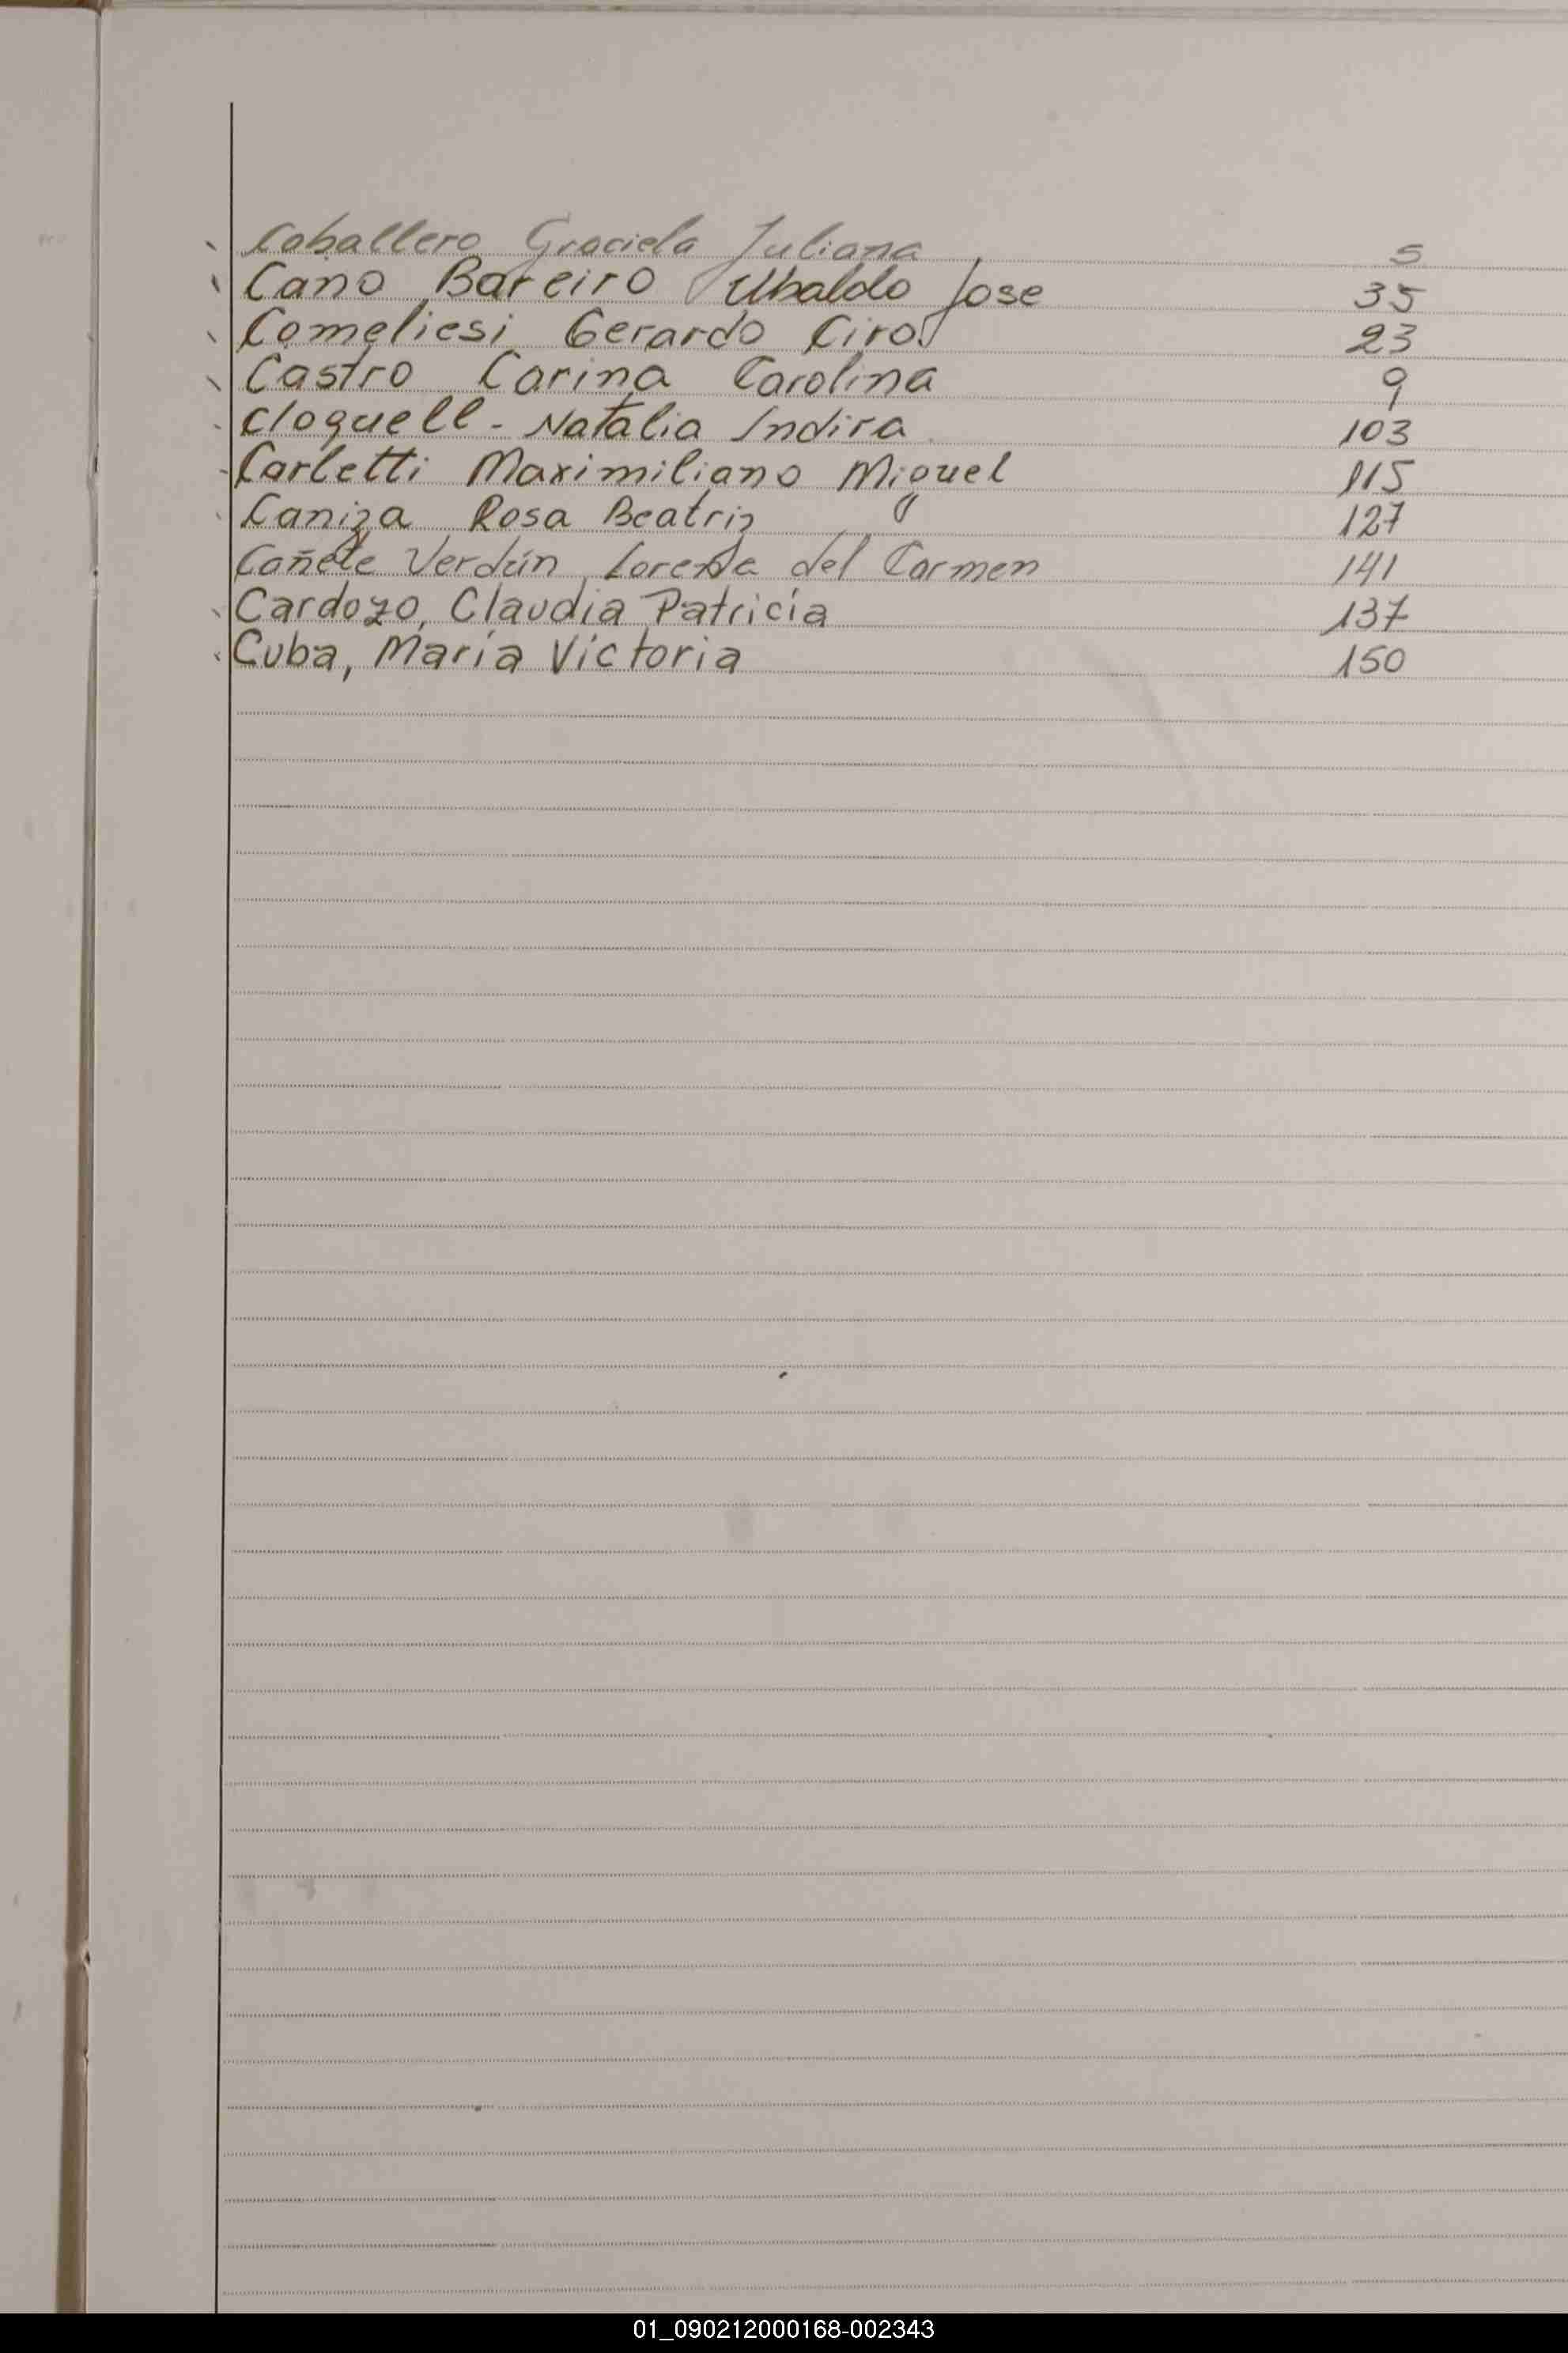 Caballero Graciela Juliana 5
Cano Bareiro Ubaldo Jose 35
Comeliesi Gerardo Ciro 23
Castro Carina Carolina 9
Cloquell - Natalia Indira 103
Carletti Maximiliano Miguel 115
Caniza Rosa Beatriz 127
Cañete Verdún, Lorenda del Carmen 141
Cardozo, Claudia Patricia 137
Cuba, María Victoria 150
01_090212000168-002343